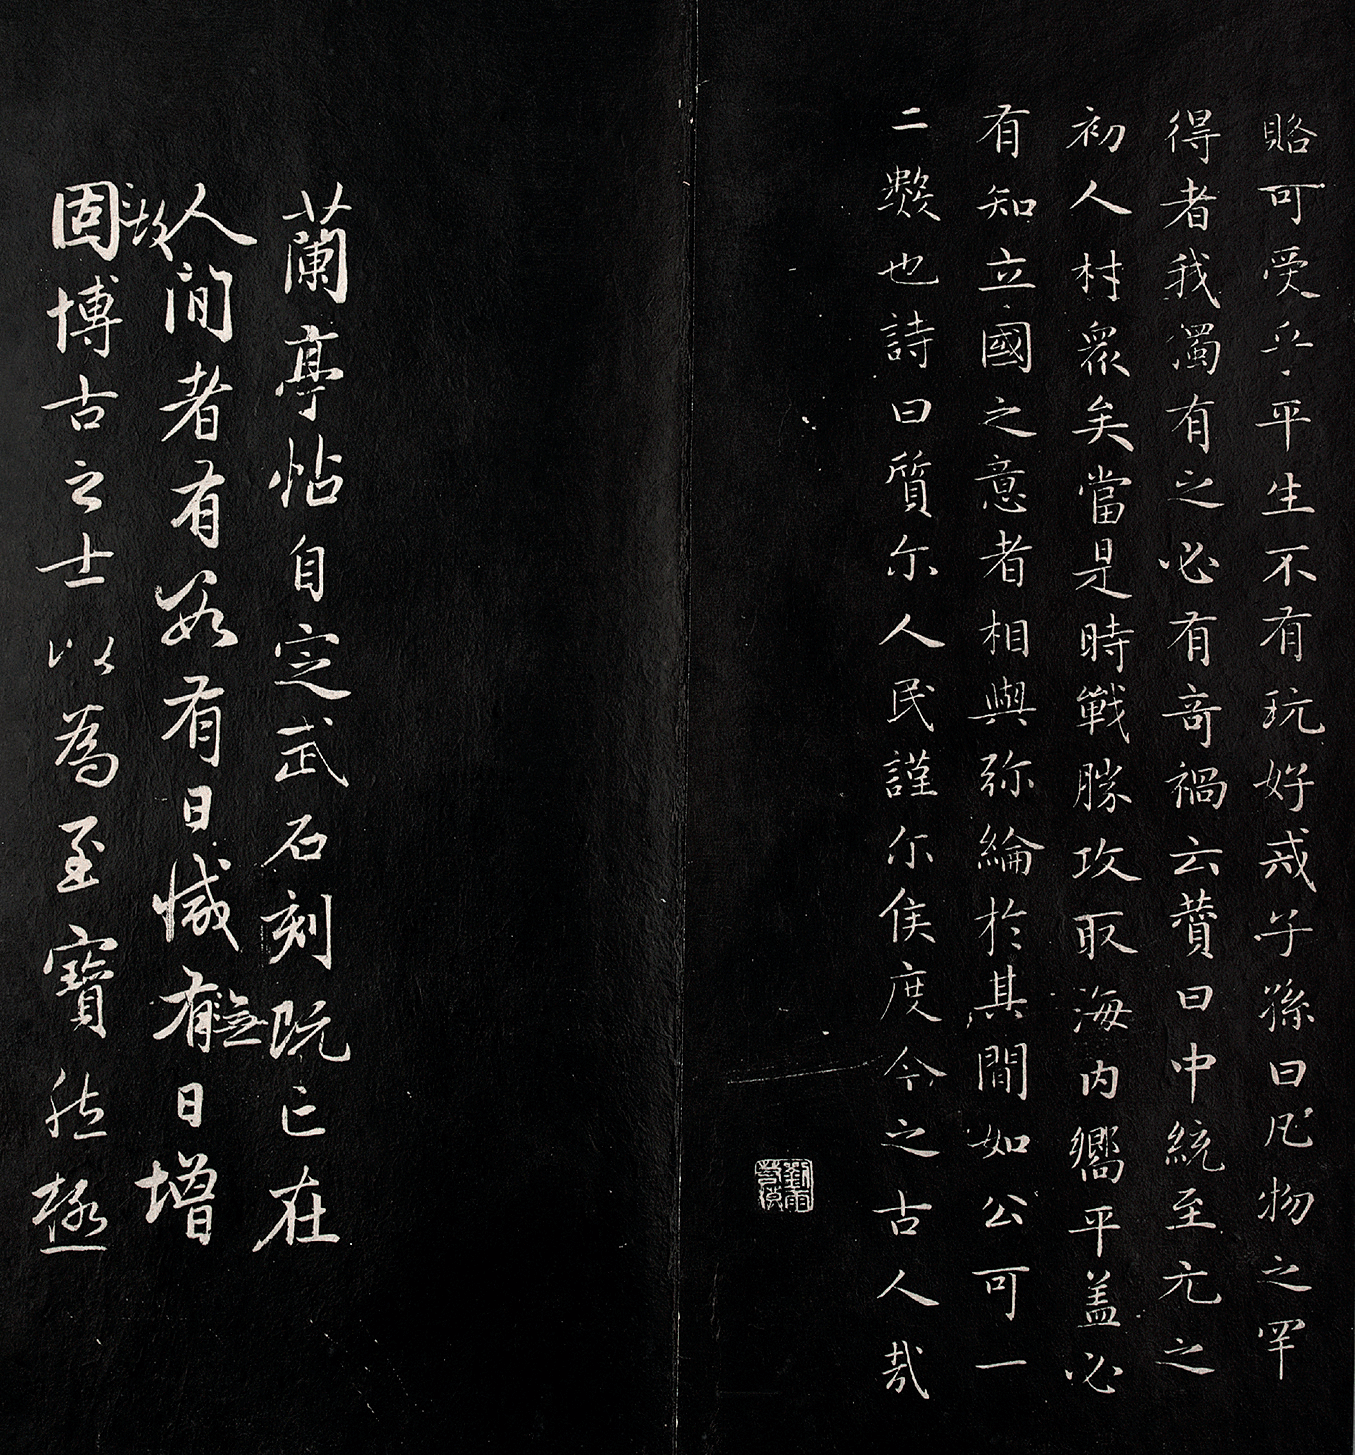 賂可受乎平生不有玩好戒子孫曰凡物之罕
得者我獨有之必有奇禍云贊曰中統至元之
初人材眾矣當是時戰勝攻取海內嚮平盖必
有知立國之意者相與弥綸於其間如公可一
二數也詩曰質尔人民謹尔侯度令之古人哉
蘭亭帖自定武石刻既已在
人間者有數有日減有無日增
故
固博古之士以為至寶然極